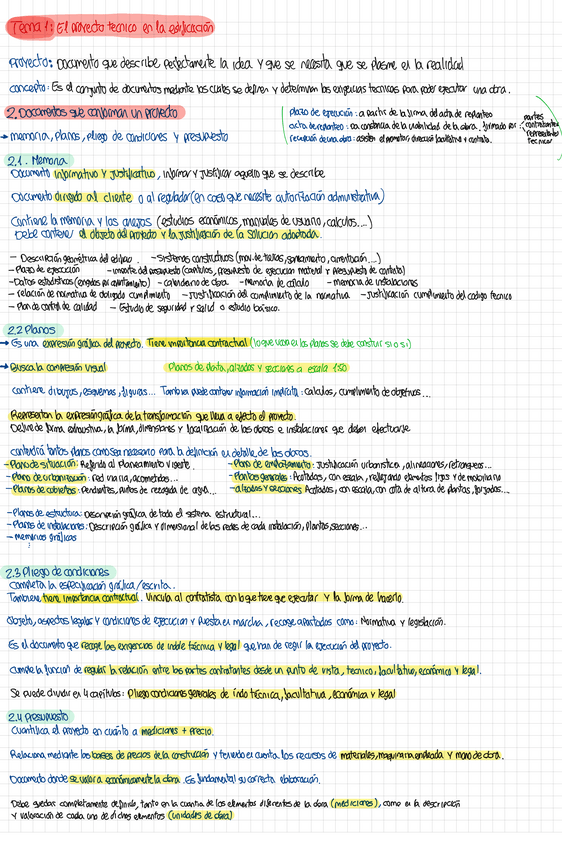 Tema 1: El proyecto tecnico en la edificación
Proyecto: Documento que describe perfectamente la idea y que se necesita que se plasme en la realidad
concepto: Es el conjunto de documentos mediante los cuales se definen y determinan las exigencias tecnicas para poder ejecutar una obra.
2. Documentos que conforman un proyecto
→ memoria, planos, pliego de condiciones y presupuesto
plazo de ejecución: a partir de la firma del acta de replanteo
acta de replanteo: da constancia de la viabilidad de la obra. firmado por:
partes contratantes
representante
tecnicos
recepción de una obra: asisten el promotor, dirección facultativa y contrata.
2.1. Memoria
Documento informativo y justificativo, informar y justificar aquello que se describe
Documento dirigido al cliente o al regulador (en caso que necesite autorización administrativa)
Contiene la memoria y los anejos (estudios económicos, manuales de usuario, calculos...)
Debe contener el objeto del proyecto y la justificación de la solución adoptada.
- Descripción geométrica del edificio. - Sistemas constructivos (mov. de tierras, saneamiento, cimentación...)
- Plazo de ejecución - importe del presupuesto (capítulos, presupuesto de ejecucion material y presupuesto de contrata)
- Datos estadísticos (exigidos por ayuntamiento) - calendario de obra - Memoria de calculo - memoria de instalaciones
- relación de normativa de obligado cumplimiento - Justificación del cumplimiento de la normativa - Justificación cumplimiento del codigo tecnico
- Plan de control de calidad - Estudio de seguridad y salud o estudio básico.
2.2 Planos
→ Es una expresión gráfica del proyecto. Tiene importancia contractual (lo que valga en los planos se debe construir si o si)
→ Busca la compresión visual Planos de planta, alzados y secciones a escala 1:50
Contiene dibujos, esquemas, figuras... Tambien puede contener información implícita: calculos, cumplimiento de objetivos...
Representan la expresión gráfica de la transformación que lleva a efecto el proyecto.
Define de forma exhaustiva, la forma, dimensiones y localización de las obras e instalaciones que deben efectuarse
contendrá tantos planos como sea necesario para la definición en detalle de las obras.
- Plano de situación: Referido al planeamiento vigente. - Plano de emplazamiento: Justificación urbanística, alineaciones, retranqueos...
- Plano de urbanización: red viaria, acometidas... - Plantas generales: Acotadas, con escala, reflejando elementos fijos y de mobiliario
- Planos de cubiertas: Pendientes, puntos de recogida de agua... - alzados y secciones: Acotados, con escala, con cota de altura de plantas, forjados...
- Planos de estructura: Descripción gráfica de todo el sistema estructural...
- Planos de instalaciones: Descripción gráfica y dimensional de las redes de cada instalación, plantas, secciones...
- memorias gráficas
2.3 Pliego de condiciones
Completa la especificación gráfica/escrita.
Tambien tiene importancia contractual. Vincula al contratista con lo que tiene que ejecutar y la forma de hacerlo.
Objeto, aspectos legales y condiciones de ejecucion y puesta en marcha, recoge apartados como: normativa y legislación.
Es el documento que recoge las exigencias de indole técnica y legal que han de regir la ejecución del proyecto.
Cumple la funcion de regular la relación entre las partes contratantes desde un punto de vista, tecnico, facultativo, económico y legal.
Se puede dividir en 4 capítulos: Pliego condiciones generales de indo tecnica, facultativa, económica y legal
2.4 Presupuesto
Cuantifica el proyecto en cuanto a mediciones + precio.
Relaciona mediante las bases de precios de la construcción y teniendo en cuenta los recursos de materiales, maquinaria empleada y mano de obra.
Documento donde se valora económicamente la obra. Es fundamental su correcta elaboración.
Debe quedar completamente definido, tanto en la cuantia de los elementos diferentes de la obra (mediciones), como en la descripción
y valoración de cada uno de dichos elementos (unidades de obra)